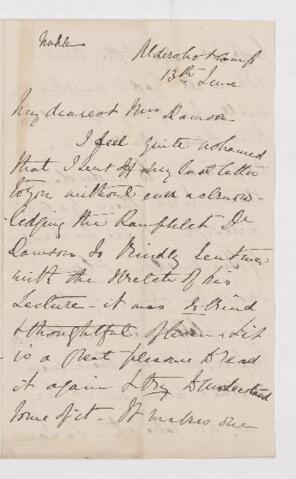 Aldershot Camp
13th June
My dearest Mrs Dawson
I feel quite ashamed
that I sent off my last letter
to you without even acknow-
ledging the Pamphlet Dr
Dawson so kindly sent me
with the sketch of his
Lecture - it was so kind
& thoughtful of him & it
is a great pleasure to read
it again & try to understand
some of it. It makes one